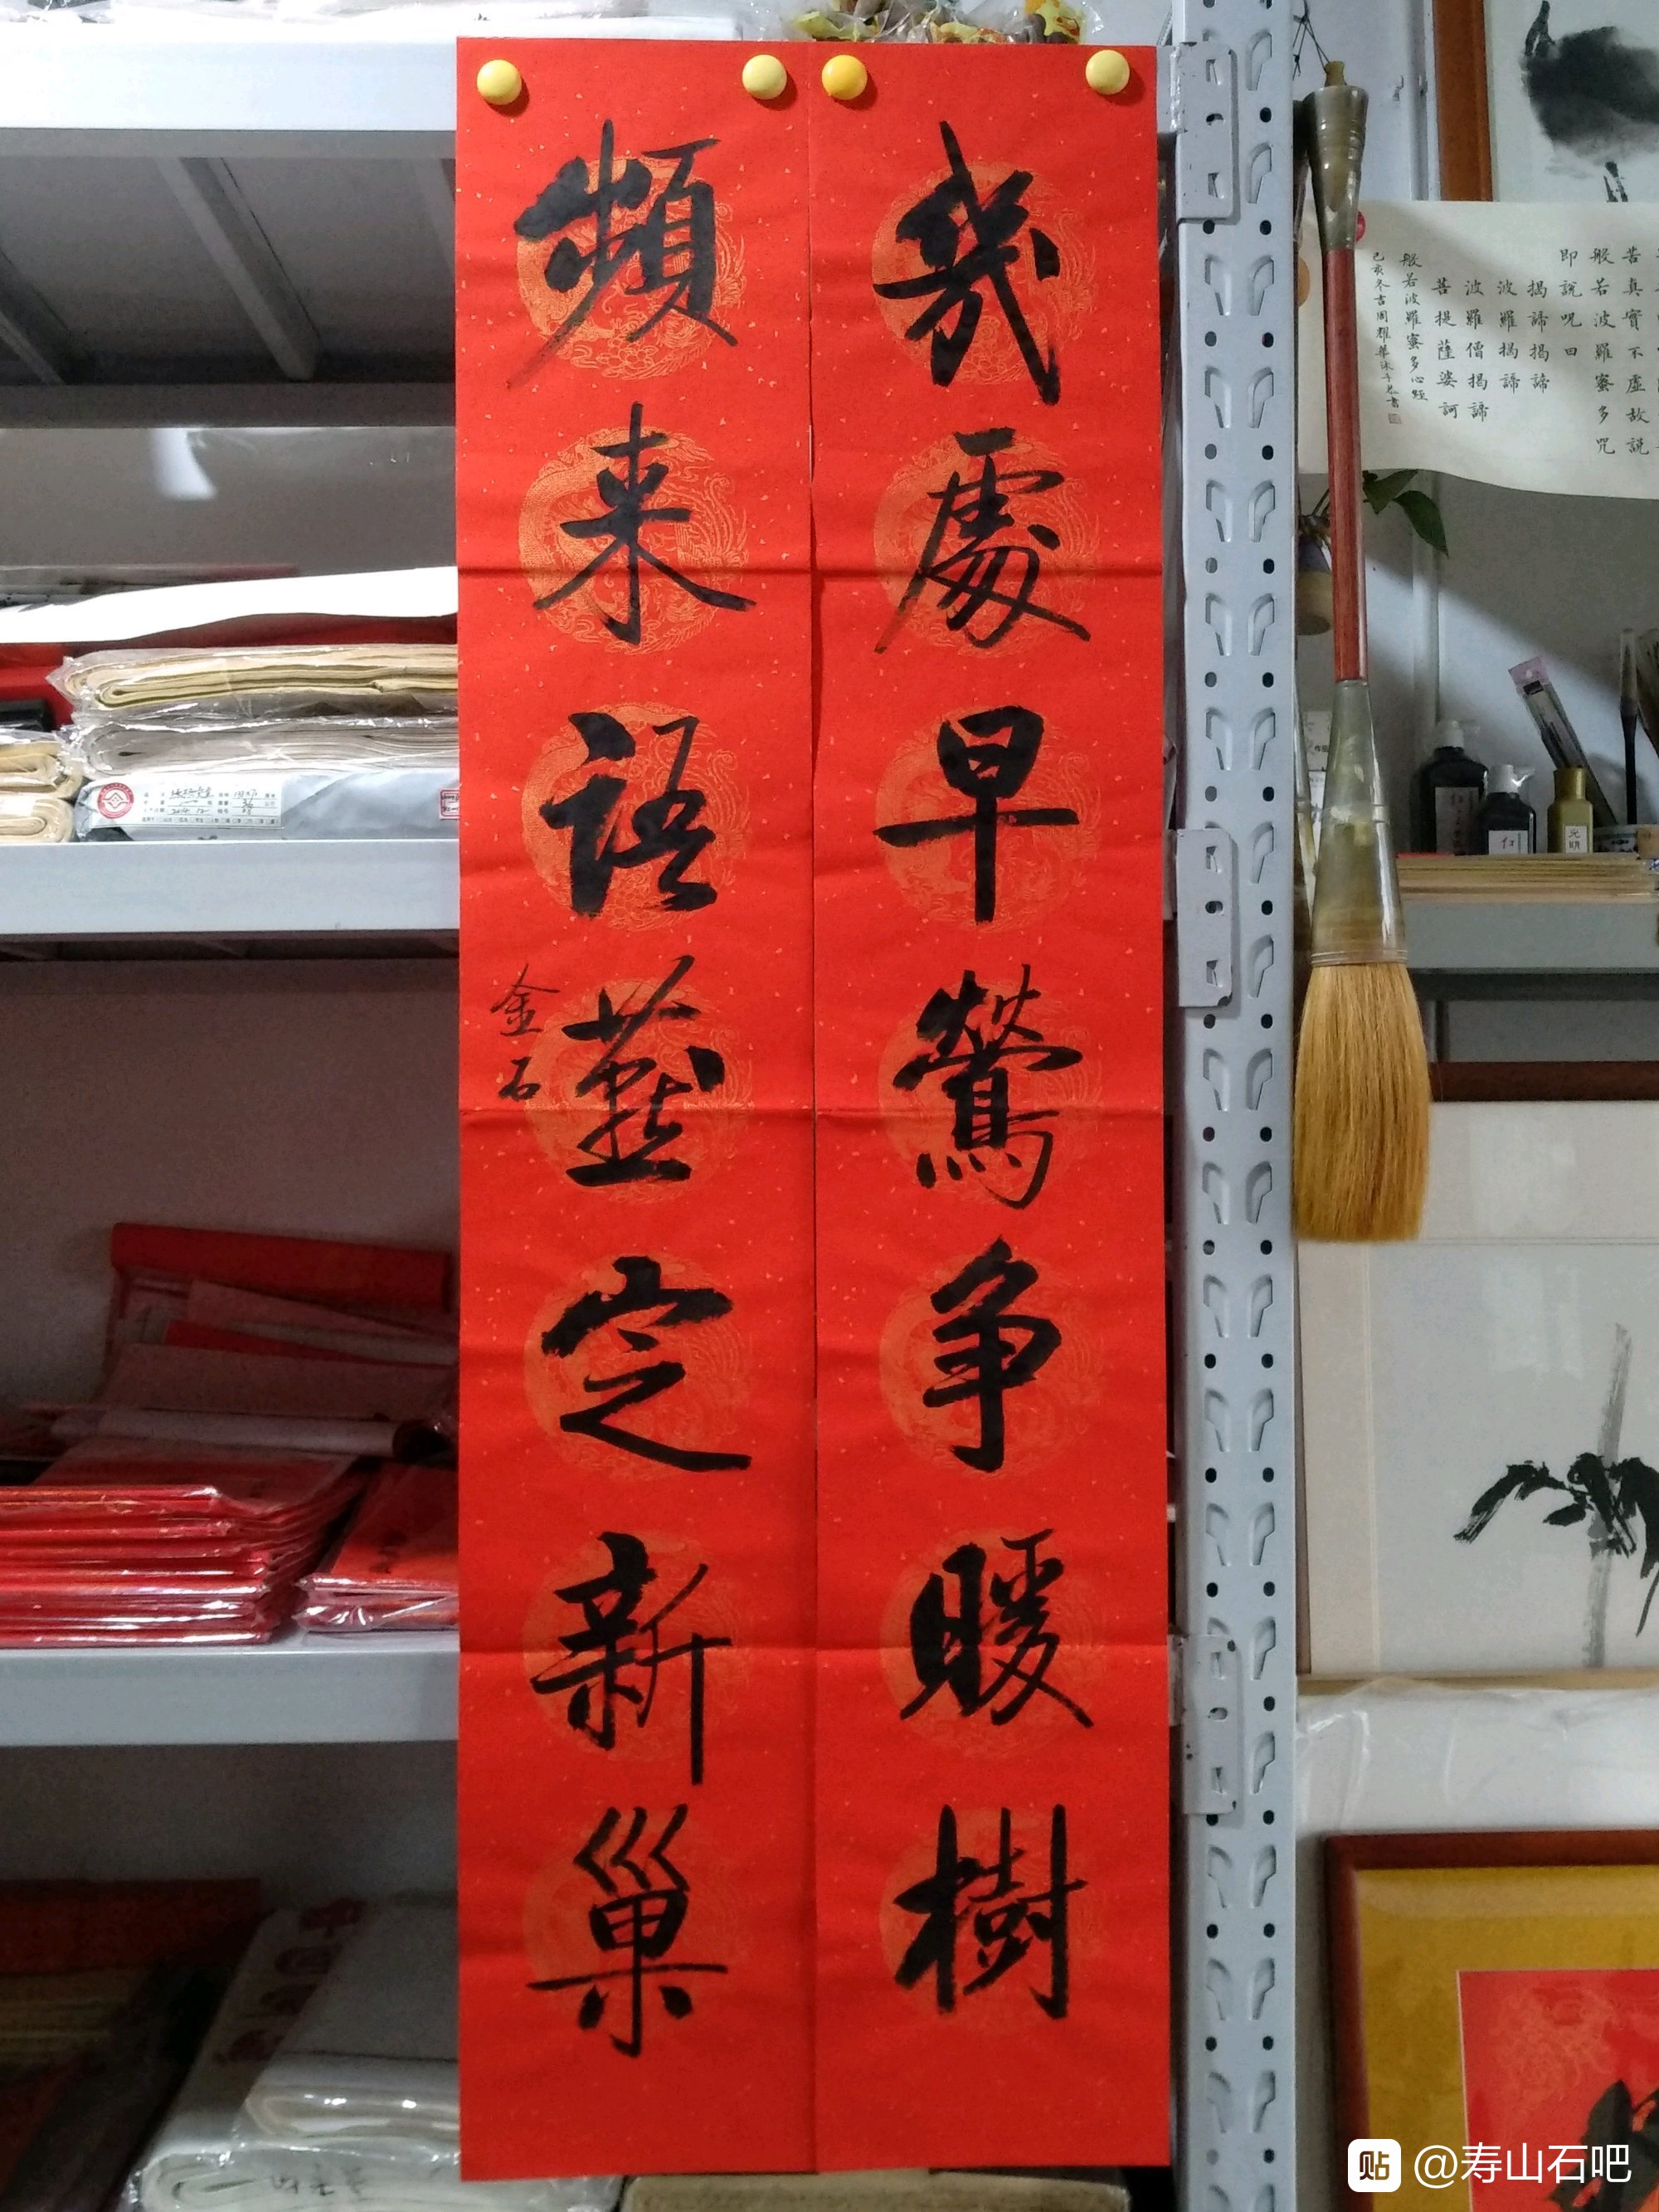 幾處早鶯爭暖樹
頻来語燕定新巢
金石
苦真實不虛故説
般若波羅蜜多咒
即說呪曰
揭諦揭諦
波羅揭諦
波羅僧揭諦
菩提薩婆訶
般若波羅蜜多心經
光明
贴 @寿山石吧